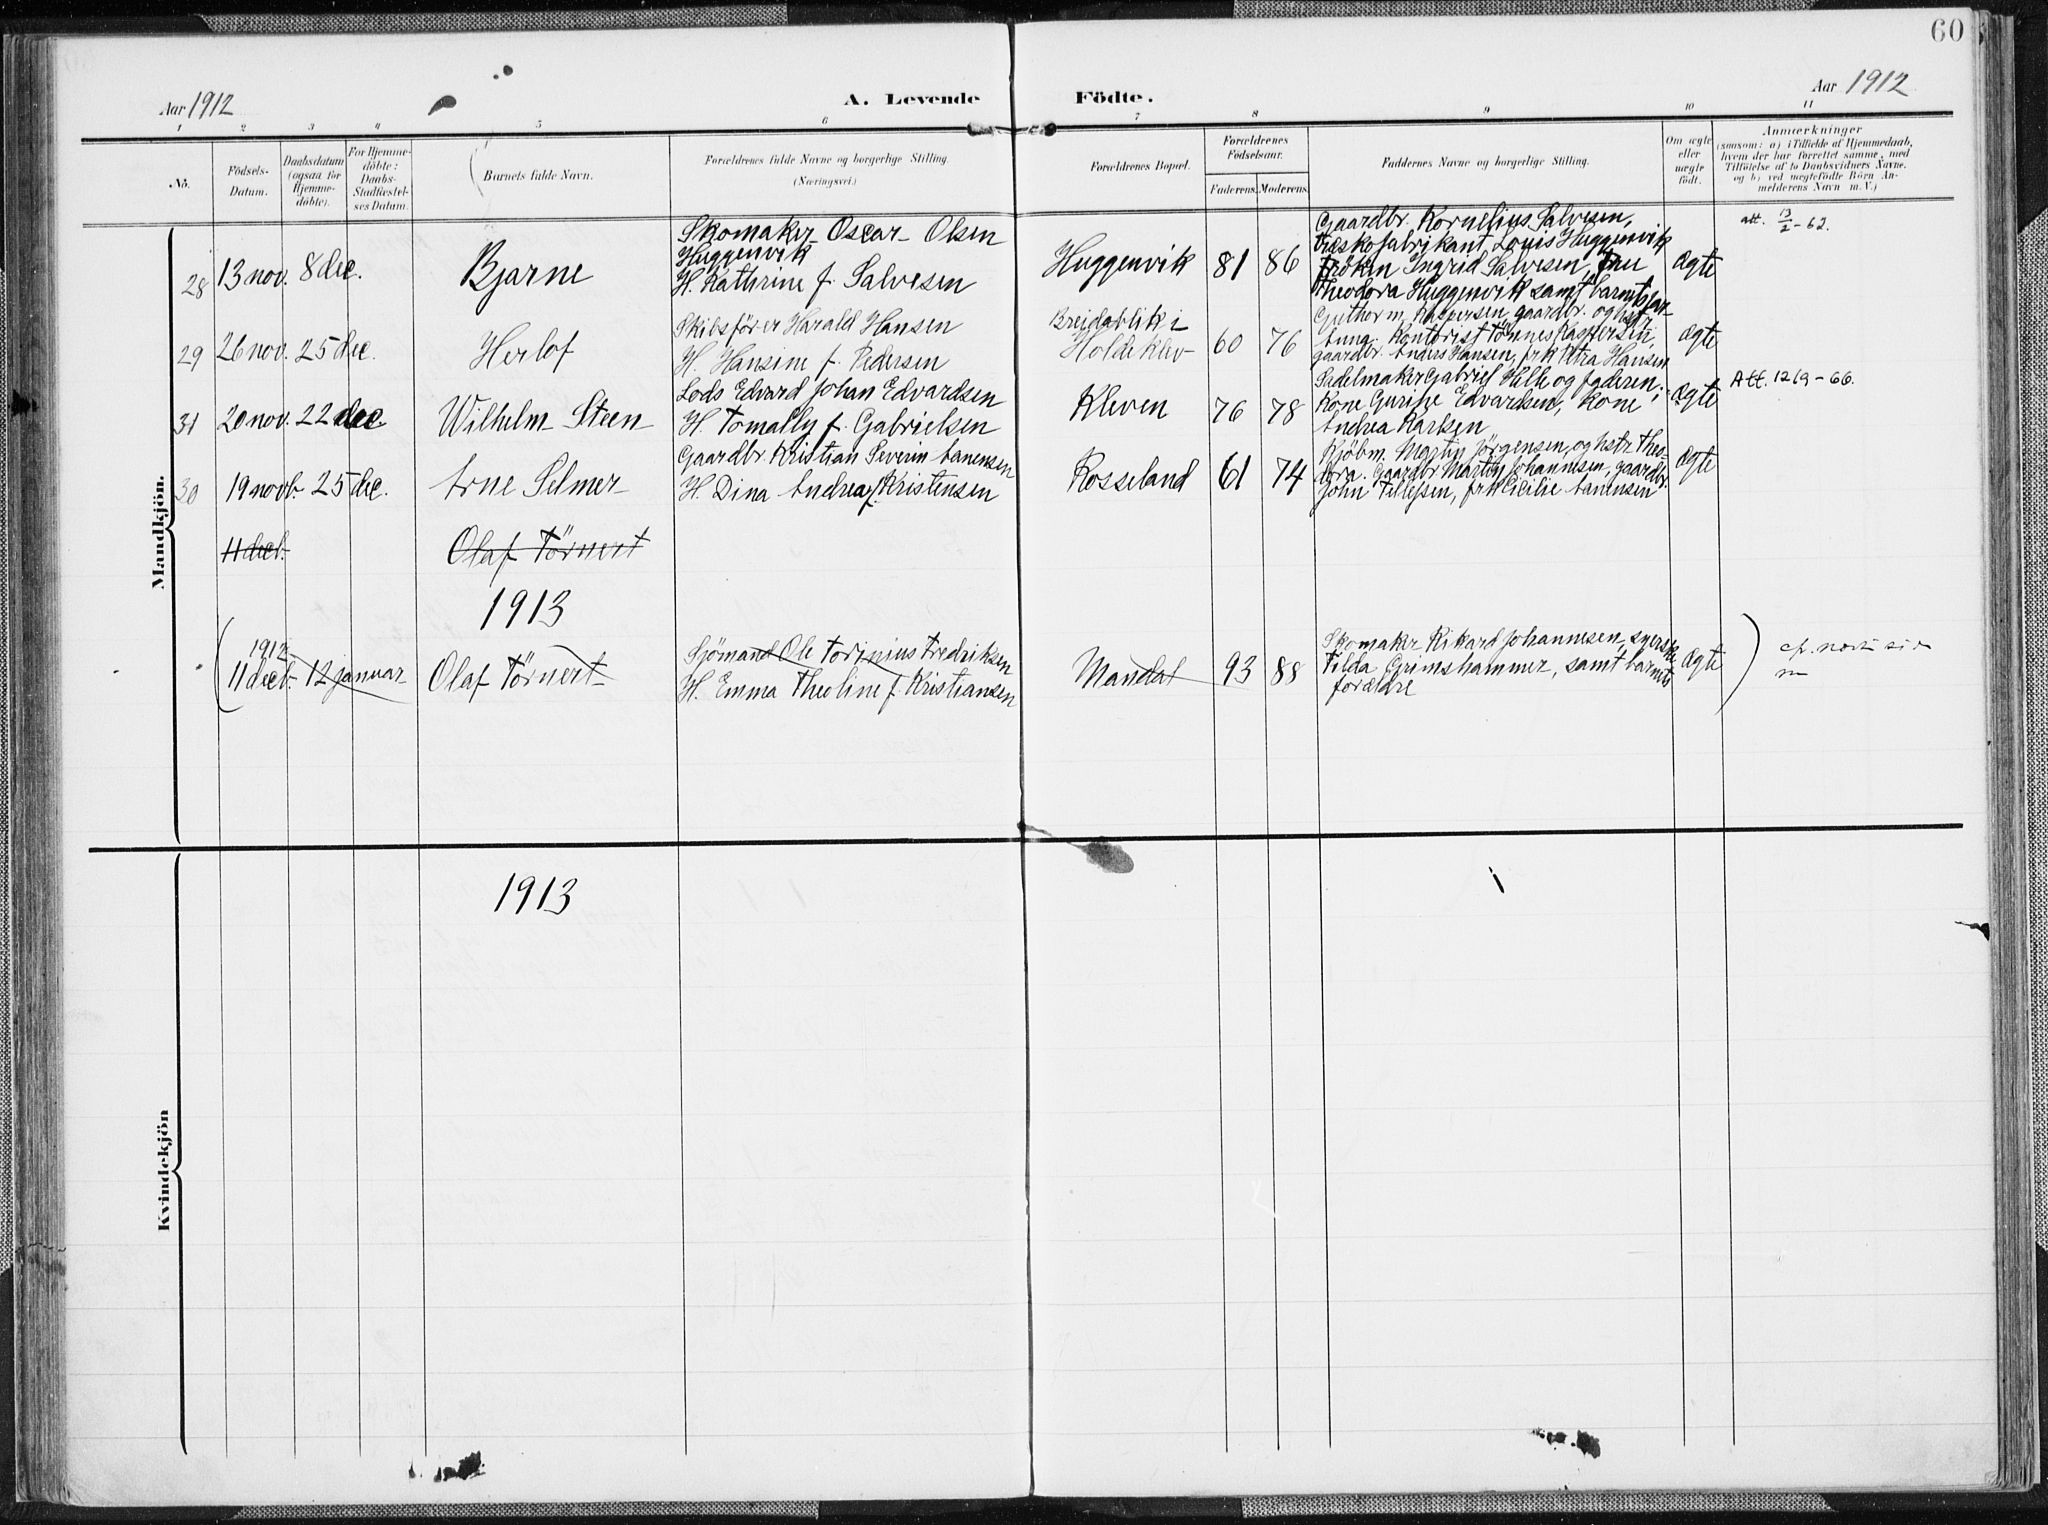 60
Aar 1912
A. Levende Födte.
Aar 1912
1 2 3 4 5 6 7 8 9 10 11
No.
Födsels-
Datum.
Daabsdatum
(ogsaa for
Hjemme-
döbte).
For Hjemme-
döbte:
Daabs-
Stadfæstel-
ses Datum.
Barnets fulde Navn.
Forældrenes fulde Navne og borgerlige Stilling.
(Næringsvei.)
Forældrenes Bopæl.
Forældrenes
Födselsaar.
Faderens. Moderens.
Faddernes Navne og borgerlige Stilling.
Om ægte
eller
uægte
födt.
Anmærkninger
(saasom: a) i Tilfælde af Hjemmedaab,
hvem der har forrettet samme, med
Tilföielse af to Daabsvidners Navne.
og b) ved uægtefödte Börn An-
melderens Navn m. V.)
Mandkjön.
28 13 nov. 8 dec. Bjarne
Skomaker Oscar Olsen
Huggenvik
H. Kathrine f. Salvesen
Huggenvik 81 86
Gaardbr. Kornelius Salvesen,
træskofabrikant Louis Huggenvik
frøken Ingrid Salvesen, frue
Theodora Huggenvik samt barnets far
ægte
att. 13/2 - 62.
29 26 nov. 25 dec. Herlof
Skibsfører Harald Hansen
H. Hansine f. Pedersen
Breidablik i
Holdeklev 60 76
Guthorm Kaspersen, gaardbr. og hustr
Anna. Kontorist Tönnes Kaspersen,
gaardbr. Anders Hansen, frk Petra Hansen
ægte
31 20 nov. 22 dec. Wilhelm Steen
Lods Edvard Johan Edvardsen
H. Tomally f. Gabrielsen
Kleven 76 78
Sadelmaker Gabriel Hille og faderen.
Kone Gurine Edvardsen, kone
Andrea Karlsen
ægte
Att. 12/9 - 66.
30 19 novb 25 dec. Arne Selmer
Gaardbr. Kristian Severin Aanensen
H. Dina Andrea f. Kristensen
Rosseland 61 74
Kjöbm. Martin Jörgensen, og hstr. Theo-
dora. Gaardbr Martin Johannesen, gaardbr.
John Tillefsen, frk Cicilie Aanensen
ægte
11 decb. Olaf Törnert
1913
1912
(11 decb. 12 januar Olaf Törnert
Sjömand Ole Torjnius Fredriksen
H. Emma Theoline f. Kristiansen
Mandal 93 88
Skomaker Rikard Johannesen, syerske
Tilda Grimshammer, samt barnets
forældre
ægte )
cf.
Kvindekjön
1913